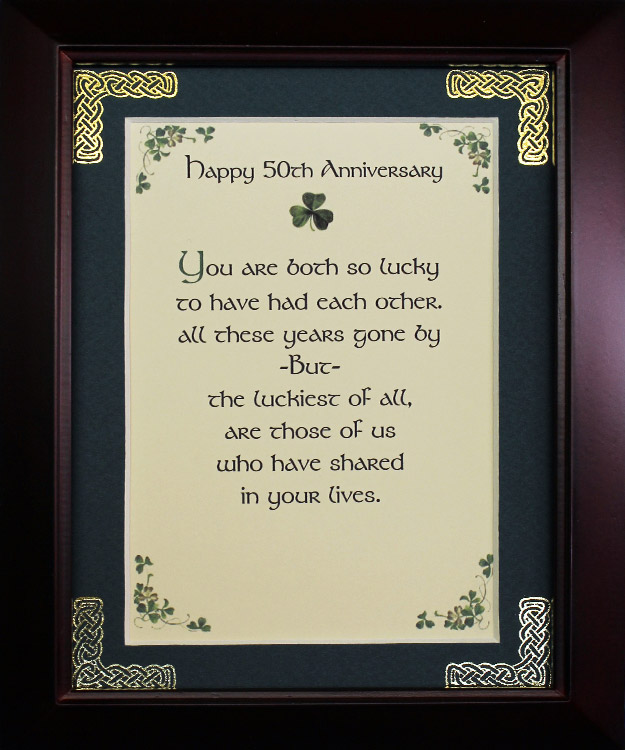 Happy 50th Anniversary
You are both so lucky
to have had each other.
all these years gone by
-But-
the luckiest of all,
are those of us
who have shared
in your lives.